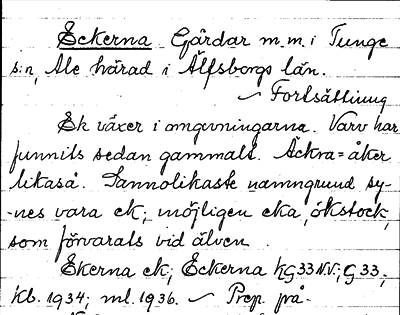 Eckerna Gårdar m.m. i Tunge
s:n, Ale härad i Älfsborgs län.
~ Fortsättning
Ek växer i omgivningarna. Varv har
funnits sedan gammalt. Äckra = åker
likaså. Sannolikaste namngrund sy-
-nes vara ek; möjligen eka, ökstock,
som förvarats vid älven.
Ekerna ek; Eckerna hG33NV; G 33;
Kb. 1934; ml. 1936. ~ Prep. på.